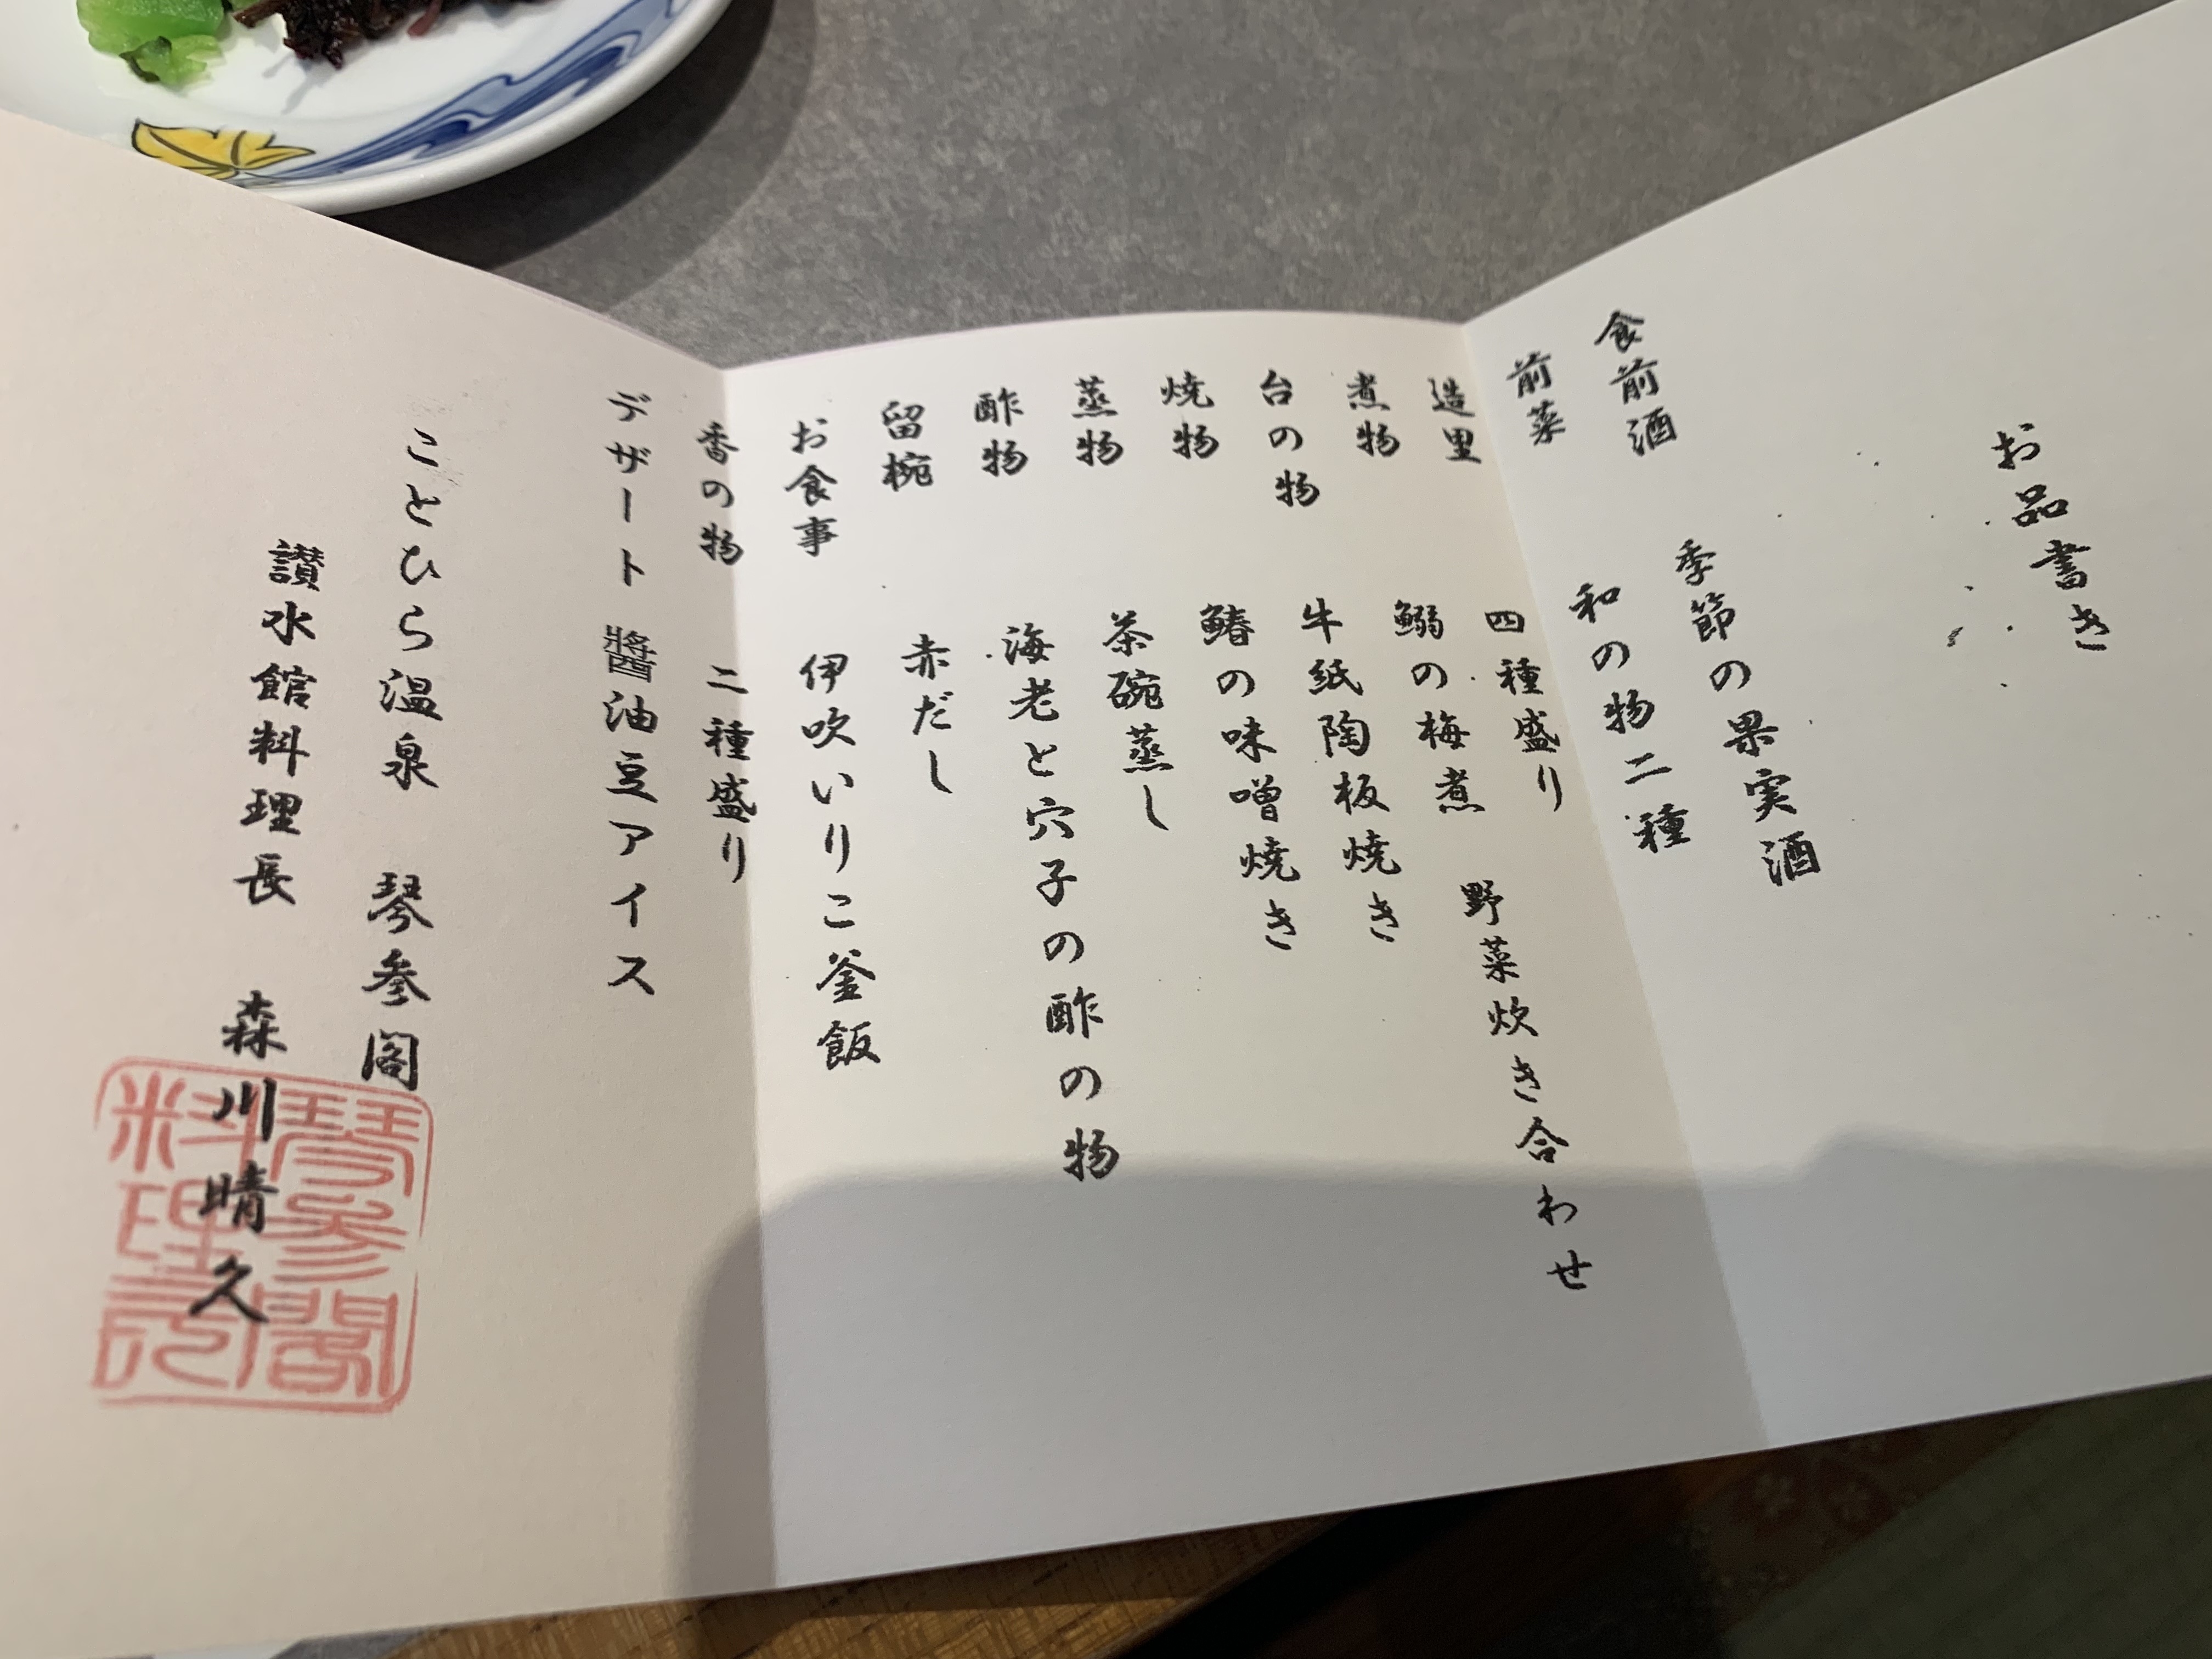 お品書き
食前酒 季節の果実酒
前菜 和の物二種
造里 四種盛り
煮物 鰯の梅煮 野菜炊き合わせ
台の物 牛紙陶板焼き
焼物 鰆の味噌焼き
蒸物 茶碗蒸し
酢物 海老と穴子の酢の物
留椀 赤だし
お食事 伊吹いりこ釜飯
香の物 二種盛り
デザート 醬油豆アイス
ことひら温泉 琴参閣
讃水館料理長 森川晴久
琴参閣
料理長